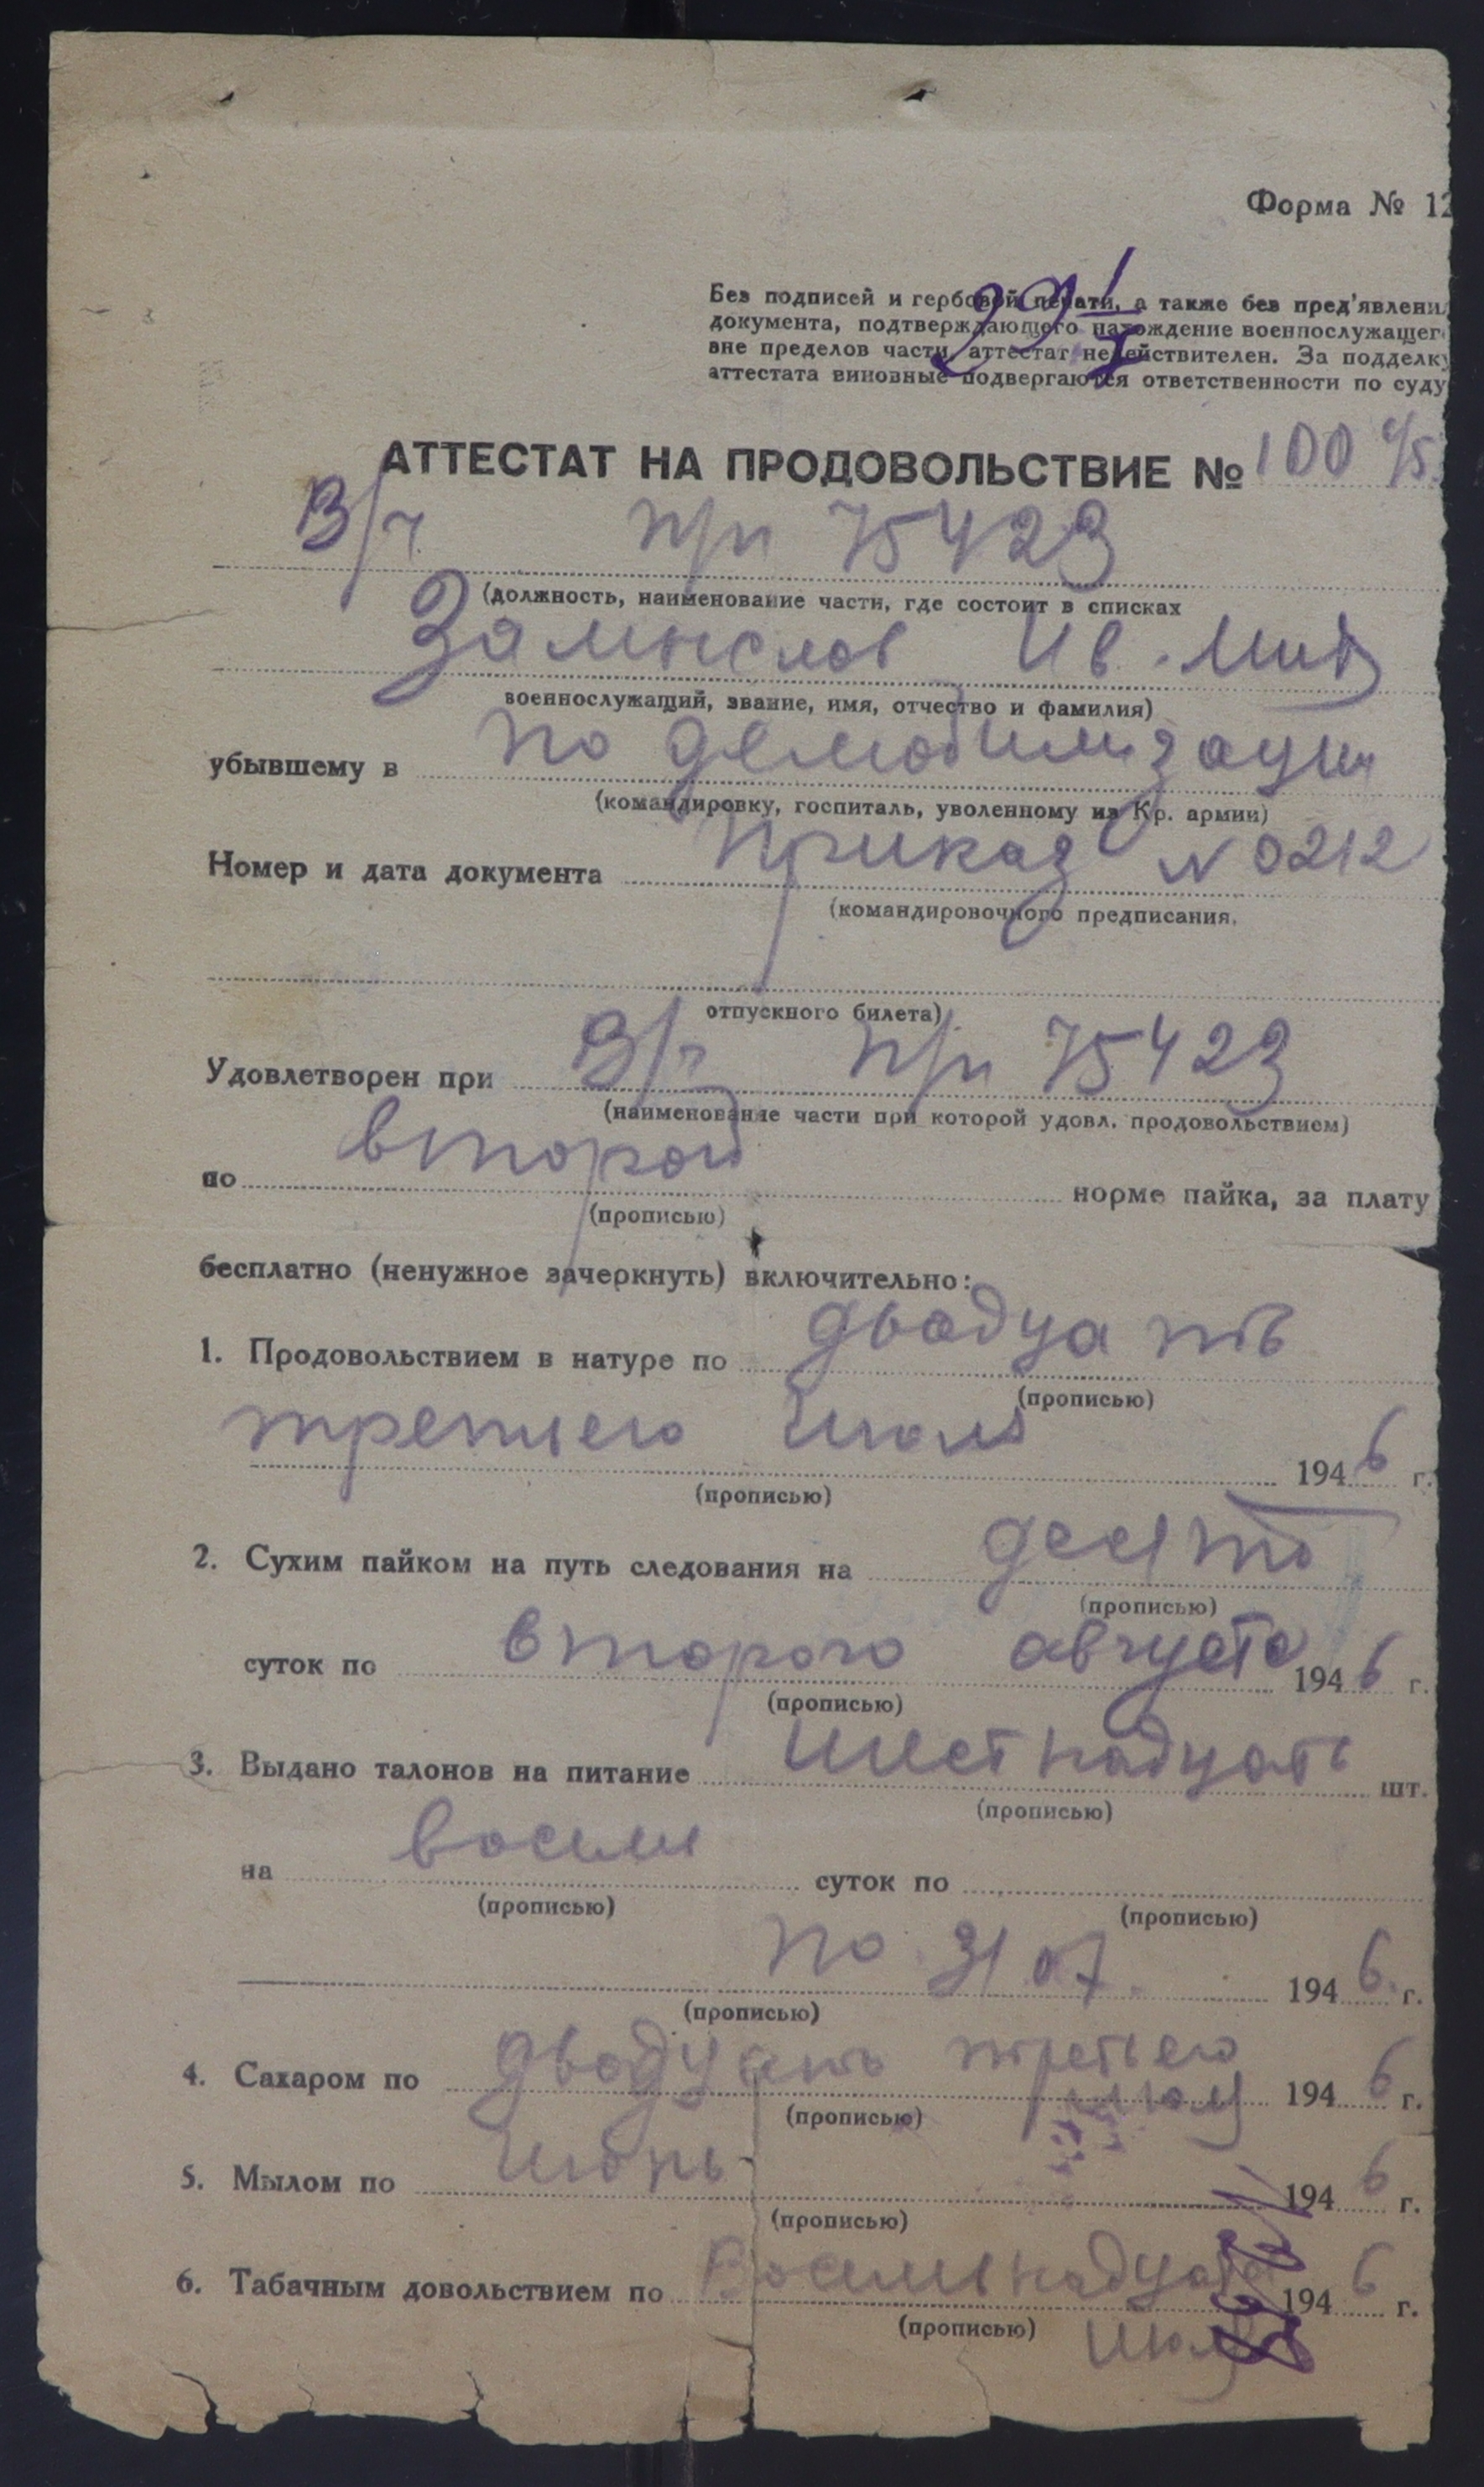 Форма № 12
Без подписей и гербовой печати, а также без пред'явлени
документа, подтверждающего нахождение военнослужащег
вне пределов части, аттестат недействителен. За подделк
аттестата виновные подвергаются ответственности по суду
АТТЕСТАТ НА ПРОДОВОЛЬСТВИЕ № 100
В/ч п/п 75423
(должность, наименование части, где состоит в списках
Замыслов Ив. Мит
военнослужащий, звание, имя, отчество и фамилия)
убывшему в по демобилизации
(командировку, госпиталь, уволенному из Кр. армии)
Номер и дата документа Приказ N 0212
(командировочного предписания,
отпускного билета)
Удовлетворен при В/ч п/п 75423
(наименование части при которой удовл. продовольствием)
по второй норме пайка, за плату
(прописью)
бесплатно (ненужное зачеркнуть) включительно:
1. Продовольствием в натуре по двадцать
(прописью)
третьего июля 1946 г.
(прописью)
2. Сухим пайком на путь следования на десять
(прописью)
суток по второго августа 1946 г.
(прописью)
3. Выдано талонов на питание шестнадцать шт.
(прописью)
на восемь суток по
(прописью) (прописью)
по 31.07. 1946 г.
(прописью)
4. Сахаром по двадцать третьего июля 1946 г.
(прописью)
5. Мылом по 1946 г.
(прописью)
6. Табачным довольствием по Восемнадцать 1946 г.
(прописью) июля